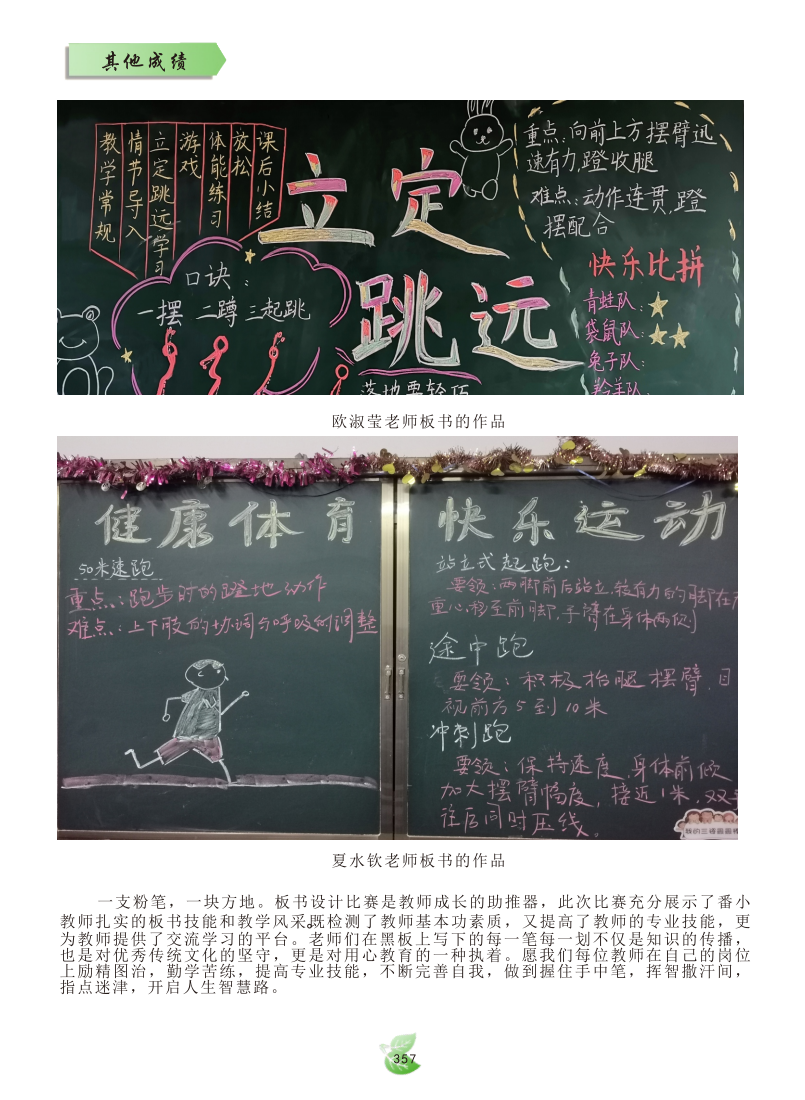 其他成绩
教学常规
情节导入
立定跳远学习
游戏
体能练习
放松
课后小结
立定
跳远
重点:向前上方摆臂迅
速有力,蹬收腿
难点:动作连贯,蹬
摆配合
口诀:
一摆 二蹲 三起跳
快乐比拼
青蛙队:
袋鼠队:
兔子队:
羚羊队:
落地要轻巧
欧淑莹老师板书的作品
健康体育
50米速跑
重点:跑步时的蹬地动作
难点:上下肢的协调与呼吸的调整
快乐运动
站立式起跑:
要领:两脚前后站立,较有力的脚在
重心移至前脚,手臂在身体两侧
途中跑
要领:积极抬腿摆臂,目
视前方5到10米
冲刺跑
要领:保持速度,身体前倾
加大摆臂幅度,接近1米,双手
往后同时压线。
夏水钦老师板书的作品
一支粉笔,一块方地。板书设计比赛是教师成长的助推器,此次比赛充分展示了番小
教师扎实的板书技能和教学风采,既检测了教师基本功素质,又提高了教师的专业技能,更
为教师提供了交流学习的平台。老师们在黑板上写下的每一笔每一划不仅是知识的传播,
也是对优秀传统文化的坚守,更是对用心教育的一种执着。愿我们每位教师在自己的岗位
上励精图治,勤学苦练,提高专业技能,不断完善自我,做到握住手中笔,挥智撒汗间,
指点迷津,开启人生智慧路。
357